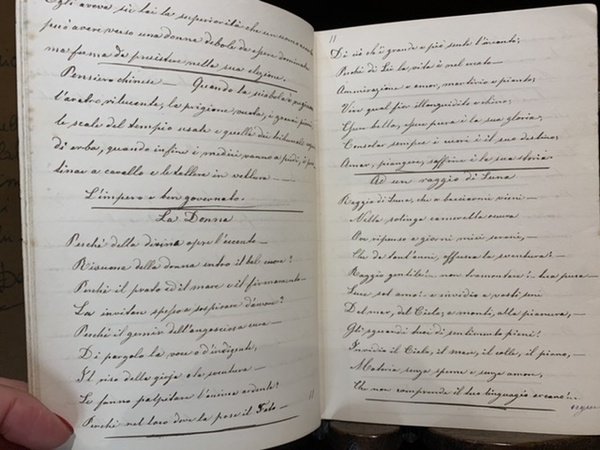 Egli aveva su lui la superiorità che un uomo
può avere verso una donna debole da esser dominata
ma forma da
Pensiero chinese — Quando la sciabola è rugginosa
l'aratro rilucente, la prigione vuota, e granai pieni
le scale del tempio usate e quelle dei tribunali
di erba, quando infine i medici vanno a piedi, i
a cavallo e
L'impero è ben governato.
La Donna
Perchè della divina opra l'accento —
Risuona della donna entro il bel cuore?
Perchè il prato ed il mare e il firmamento —
La invitan spesso a sospirar d'amore?
Perchè il gemir dell'angosciosa
Di pargolo la voce o d'indigente,
Il riso della gioja e la sventura —
Le fanno palpitare l'anima ardente?
Perchè nel loco dove la pose il Fato —
11
11
Di ciò ch'è grande e più sente l'incanto;
Perchè di Lei la vita è nel creato —
Ammirazione e amor, martirio e pianto;
Vive qual fior illanguidito e chino;
bella, pura è la sua gloria;
Consolar sempre è il suo destino;
Amar, piangere, soffrire è la sua storia
Ad un raggio di Luna
Raggio di Luna, che a baciarmi vieni —
Nella solinga cameretta oscura
Por riposo e giorni miei sereni,
Che da tant'anni, offusca la sventura!
Raggio gentile! — non tramontar! — tua pura —
Luce sol amo! — invidio e vasti seni
Del mar, del Cielo, e monti, alla pianura,
Gli sguardi tuoi di sentimento pieni!
Invidio il Cielo, il mare, il colle, il piano, —
Materia senza speme e senza amore,
Che non comprende il tuo linguaggio arcano! —